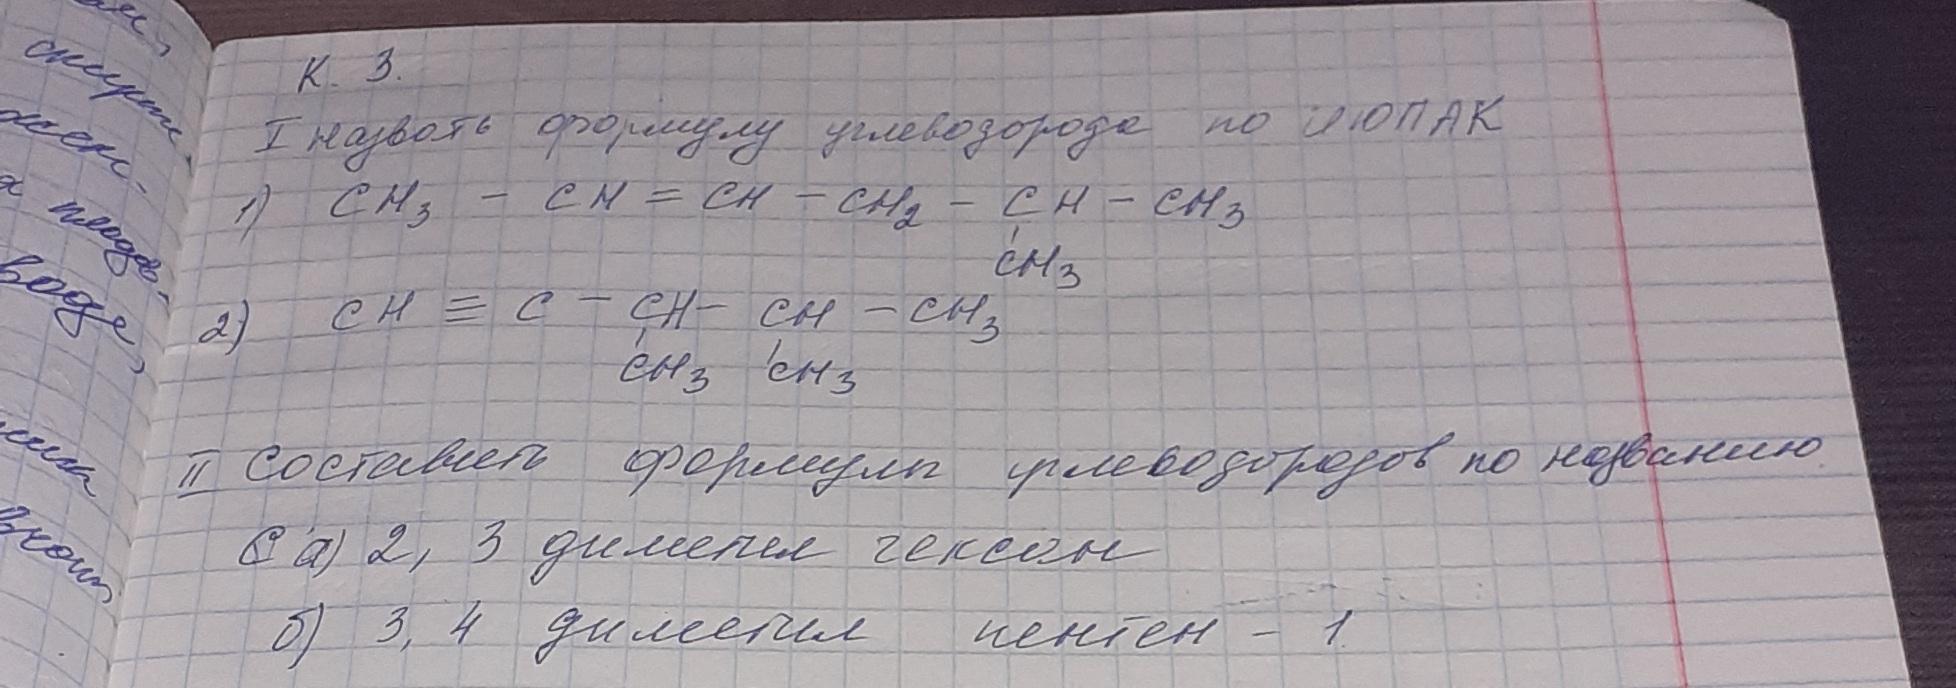 ам,
смерти,
жен-
х плодо-
воде,
К. 3.
I назвать формулу углеводорода по ИЮПАК
1) CH3 - CH = CH - CH2 - CH - CH3
CH3
2) CH ≡ C - CH - CH - CH3
CH3 CH3
II Составить формулы углеводородов по названию
С а) 2, 3 диметил гексан
б) 3, 4 диметил пентен - 1.